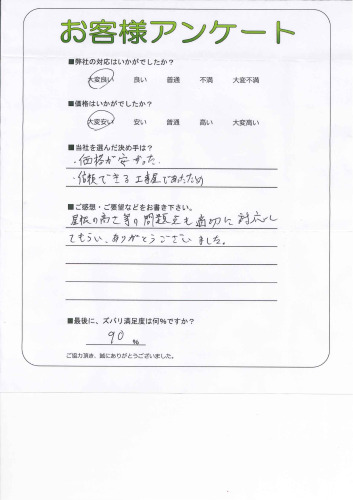 お客様アンケート
■弊社の対応はいかがでしたか？
大変良い 良い 普通 不満 大変不満
■価格はいかがでしたか？
大変安い 安い 普通 高い 大変高い
■当社を選んだ決め手は？
・価格が安かった
・信頼できる工事屋であったため
■ご感想・ご要望などをお書き下さい。
屋根の高さ等の問題点も適切に対応し
てもらい、ありがとうございました。
■最後に、ズバリ満足度は何%ですか？
90 %
ご協力頂き、誠にありがとうございました。